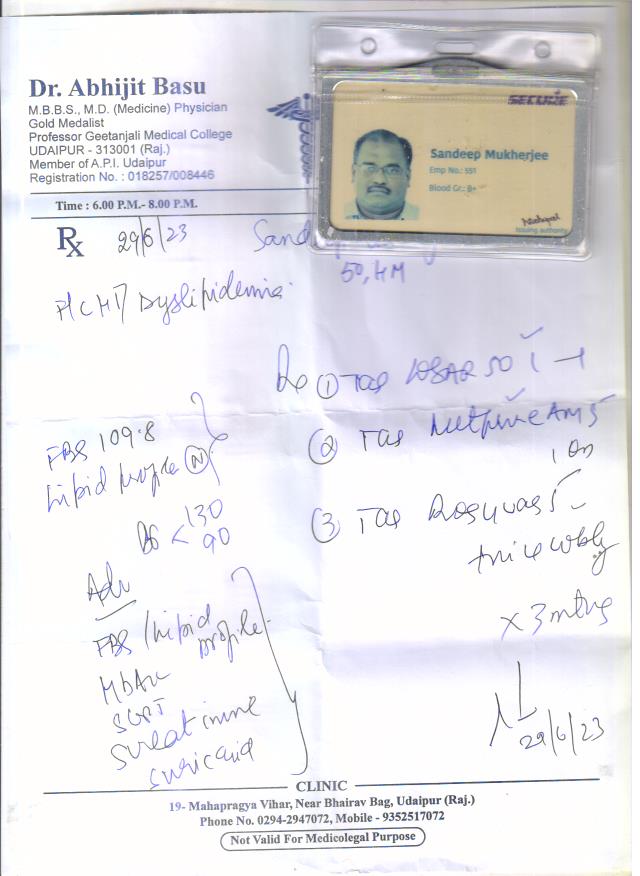 Dr. Abhijit Basu
M.B.B.S., M.D. (Medicine) Physician
Gold Medalist
Professor Geetanjali Medical College
UDAIPUR - 313001 (Raj.)
Member of A.P.I. Udaipur
Registration No. : 018257/008446
SECURE
Sandeep Mukherjee
Emp No.: 551
Blood Gr.: B+
Issuing authority
Time : 6.00 P.M.- 8.00 P.M.
Rx 29/6/23
50, HM
Dyslipidemia
① Tab LOSAR 50 1 - 1
FBS 109.8
② Tab AM5
1 OD
Lipid profile (N)
③ Tab Rosuvas 5
130
< 90
thrice wkly
Adv
FBS / Lipid profile
HbA1c
SGPT
S creatinine
S uric acid
x 3 mths
29/6/23
CLINIC
19- Mahapragya Vihar, Near Bhairav Bag, Udaipur (Raj.)
Phone No. 0294-2947072, Mobile - 9352517072
Not Valid For Medicolegal Purpose